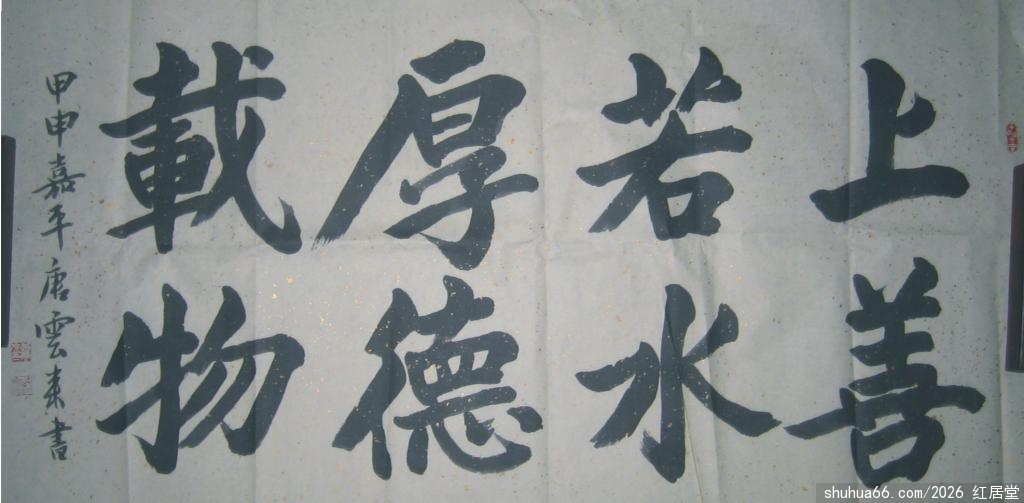 上善
若水
厚德
載物
甲申嘉平唐雲来書
shuhua66.com/2026 红居堂